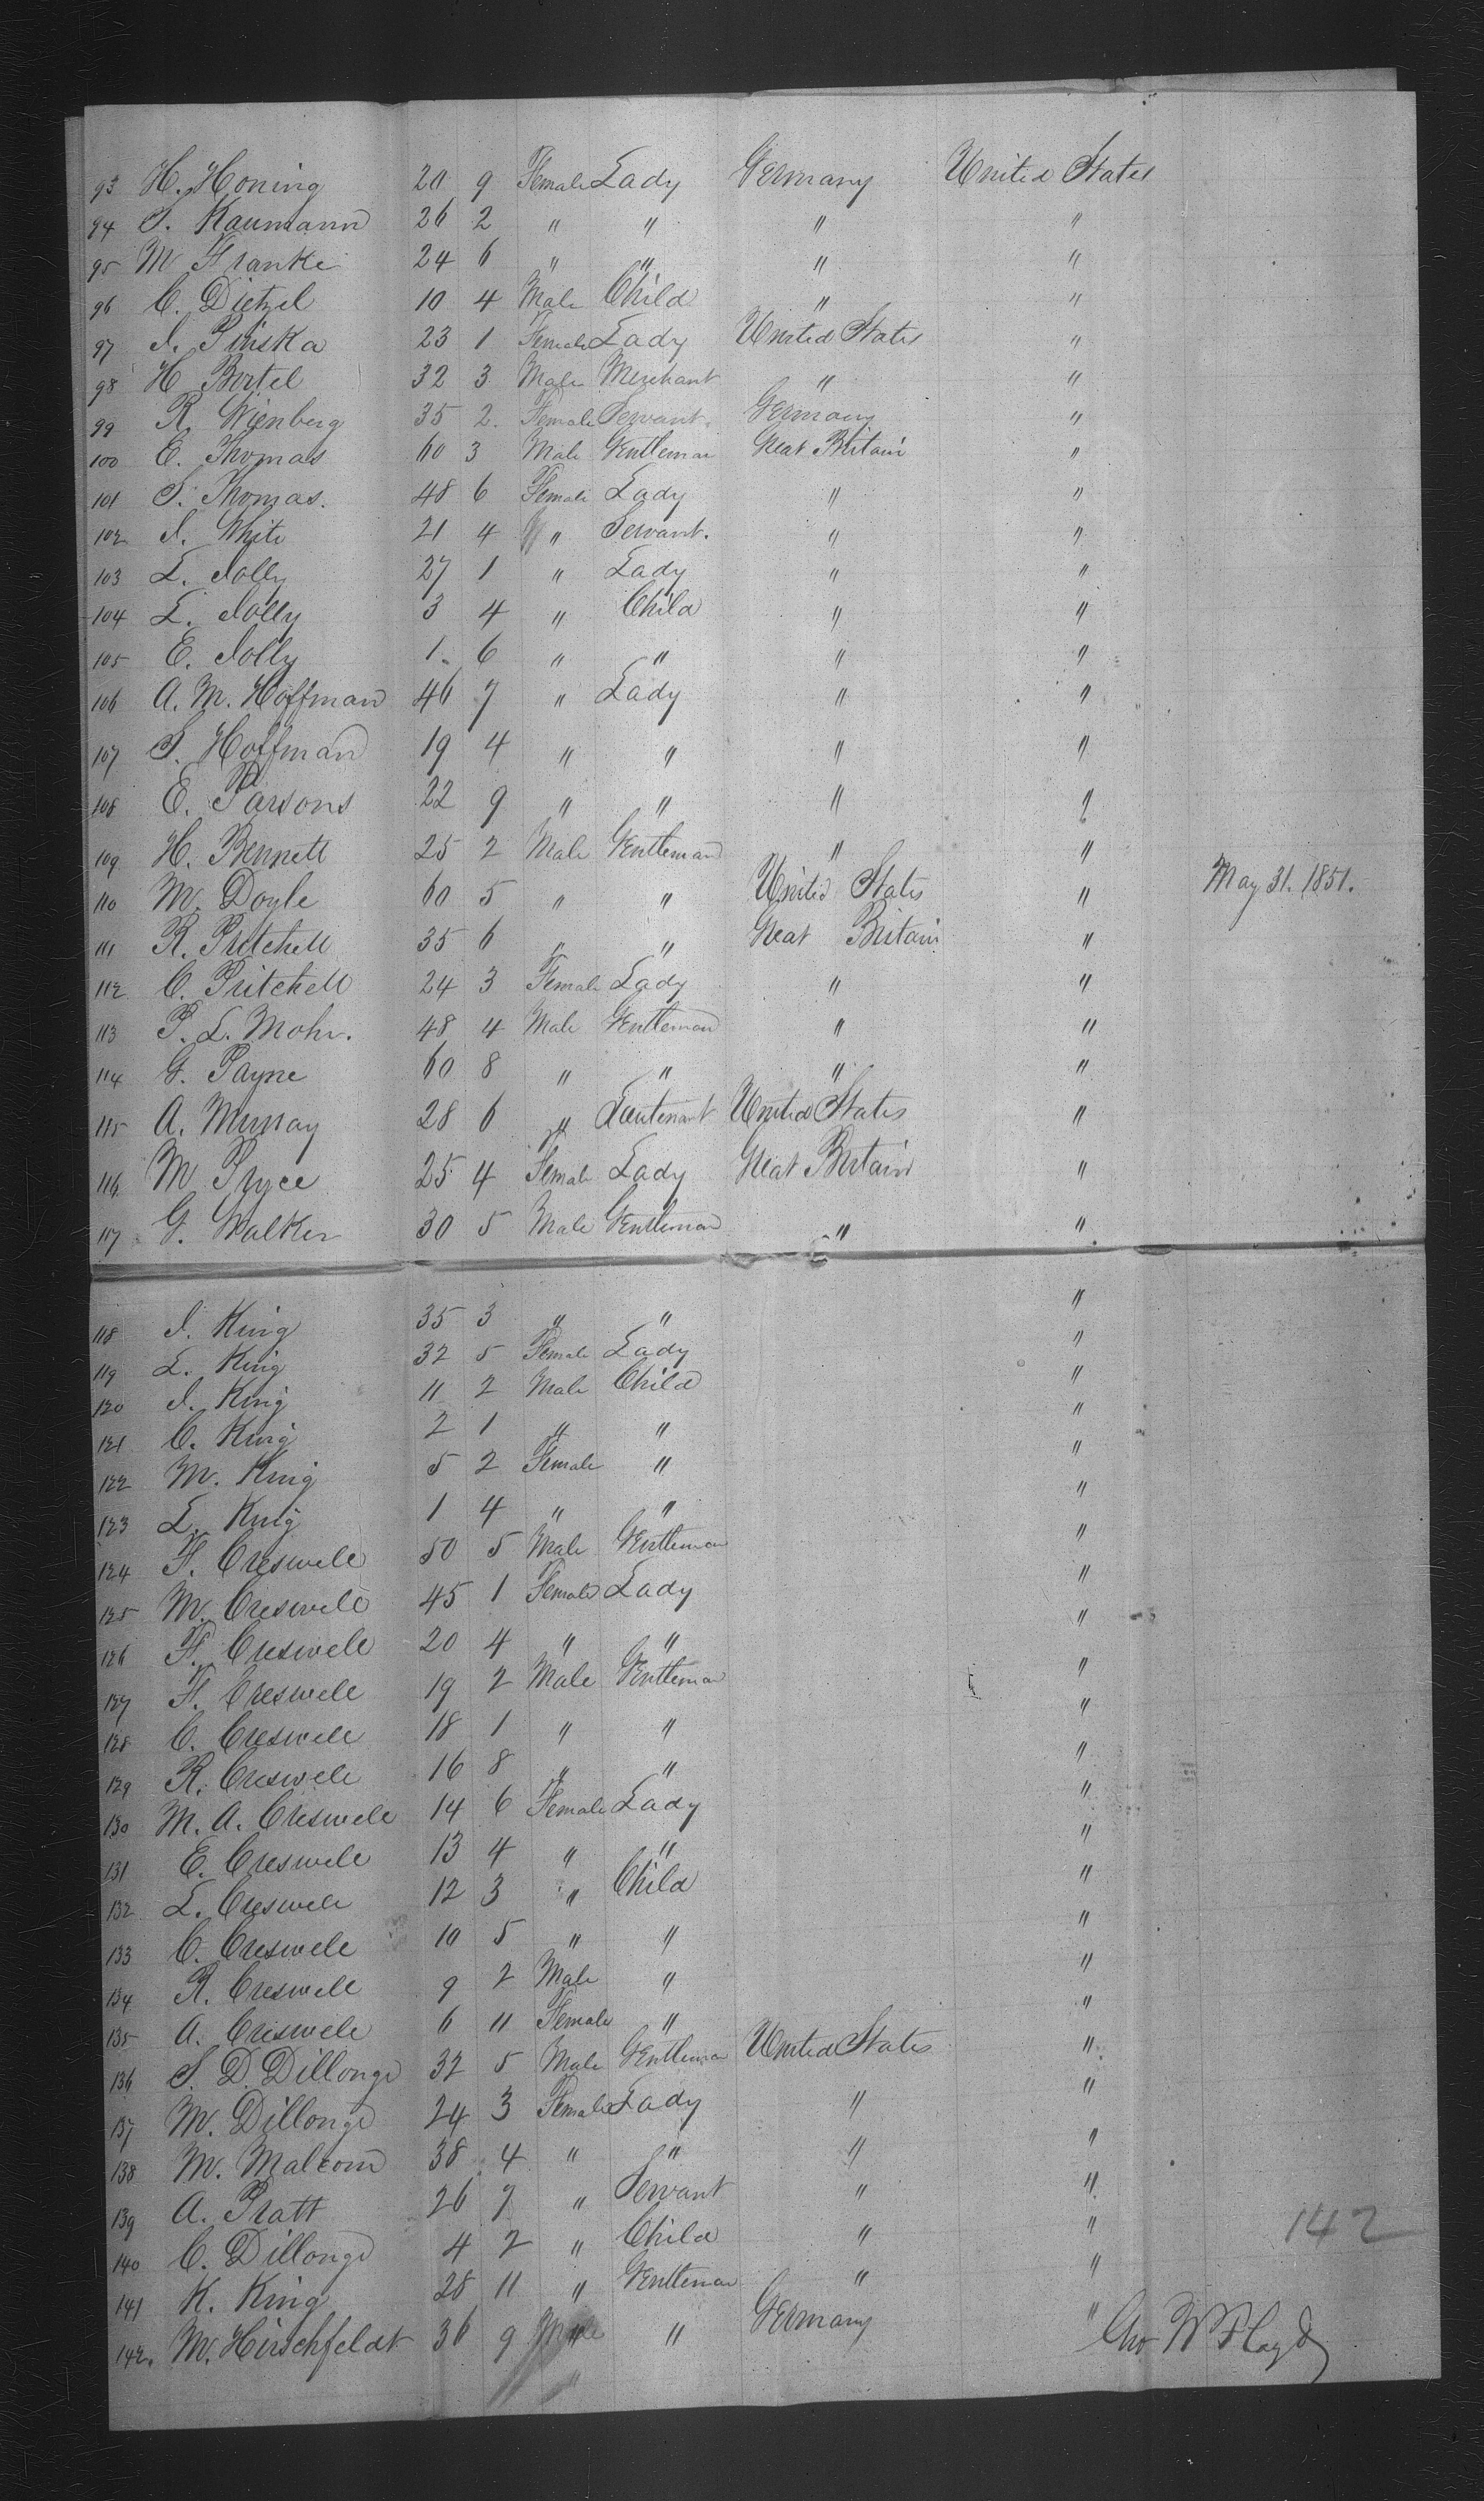 93 H. Honing 20 9 Female Lady Germany United States
94 S. Kaumann 26 2 " " " "
95 M Franke 24 6 " " " "
96 C. Dietzel 10 4 Male Child " "
97 J. Pinska 23 1 Female Lady United States "
98 H Bertel 32 3 Male Merchant " "
99 R. Wienberg 35 2. Female Servant. Germany "
100 E. Thomas 60 3 Male Gentleman Great Britain "
101 S. Thomas. 48 6 Female Lady " "
102 J. White 21 4 " Servant. " "
103 L. Jolly 27 1 " Lady " "
104 L. Jolly 3 4 " Child " "
105 E. Jolly 1. 6 " " " "
106 A. M. Hoffman 46 7 " Lady " "
107 S. Hoffman 19 4 " " " "
108 E. Parsons 22 9 " " " "
109 H. Bennett 25 2 Male Gentleman " "
110 M. Doyle 60 5 " " United States " May 31. 1851.
111 R. Pritchell 35 6 " " Great Britain "
112 C. Pritchell 24 3 Female Lady " "
113 P. L. Mohr. 48 4 Male Gentleman " "
114 G. Payne 60 8 " " " "
115 A. Murray 28 6 " Lieutenant United States "
116 M Pryce 25 4 Female Lady Great Britain "
117 G. Walker 30 5 Male Gentleman " "
118 J. King 35 3 " " "
119 L. King 32 5 Female Lady "
120 J. King 11 2 Male Child "
121 C. King 2 1 " " "
122 M. King 5 2 Female " "
123 L. King 1 4 " " "
124 F. Creswell 50 5 Male Gentleman "
125 M. Creswell 45 1 Female Lady "
126 F. Creswell 20 4 " " "
127 F. Creswell 19 2 Male Gentleman "
128 C. Creswell 18 1 " " "
129 R. Creswell 16 8 " " "
130 M. A. Creswell 14 6 Female Lady "
131 E. Creswell 13 4 " " "
132 L. Creswell 12 3 " Child "
133 C. Creswell 10 5 " " "
134 R. Creswell 9 2 Male " "
135 A. Creswell 6 11 Female " "
136 S. D. Dillonge 32 5 Male Gentleman United States "
137 M. Dillonge 24 3 Female Lady " "
138 M. Malcom 38 4 " " " "
139 A. Pratt 26 7 " Servant " "
140 C. Dillonge 4 2 " Child " "
142
141 K. King 28 11 " Gentleman " "
142. M. Hirschfeldt 36 9 Male " Germany "
Geo W Floyd